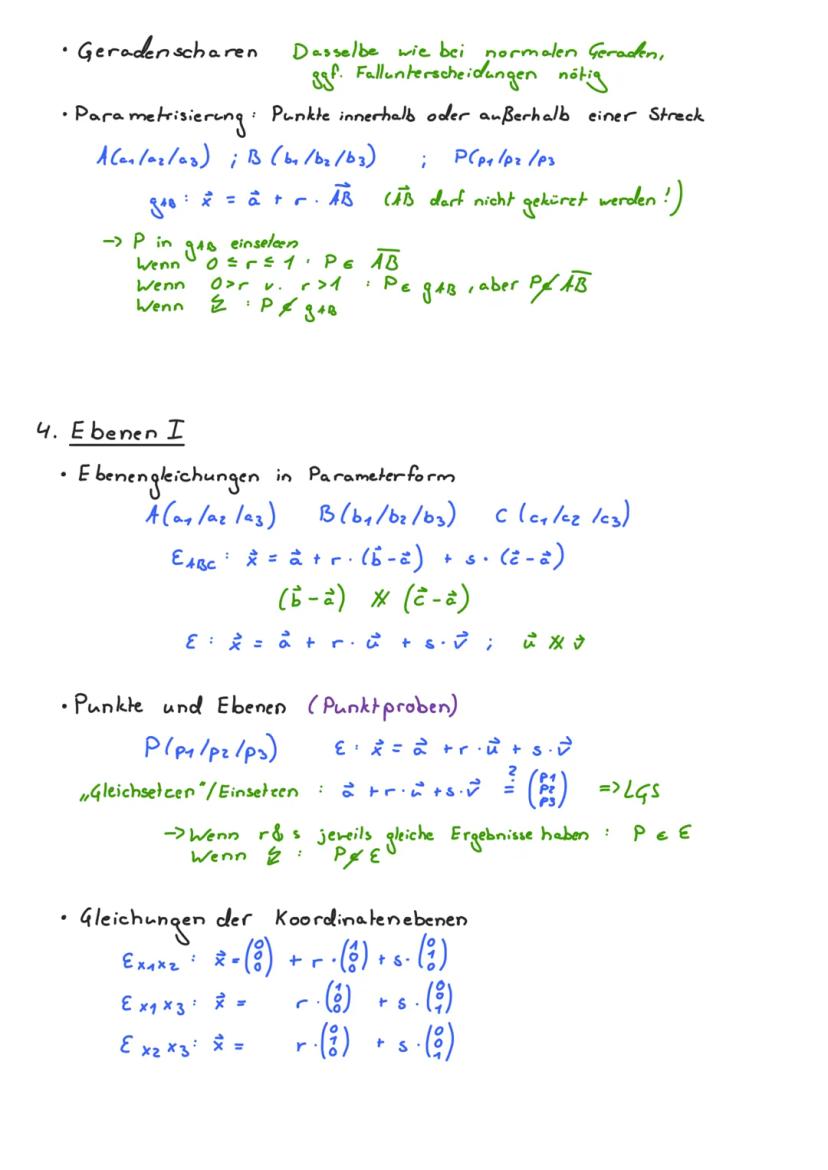 • Geradenscharen Dasselbe wie bei normalen Geraden,
ggf. Fallunterscheidungen nötig
• Parametrisierung: Punkte innerhalb oder außerhalb einer Streck
A(a1/a2/a3) ; B(b1/b2/b3) ; P(p1/p2/p3
gAB: x⃗ = a⃗ + r · AB⃗ (AB⃗ darf nicht gekürzt werden!)
-> P in gAB einsetzen
Wenn 0 ≤ r ≤ 1 : P ∈ A̅B̅
Wenn 0>r v. r>1 : P ∈ gAB, aber P ∉ A̅B̅
Wenn ↯ : P ∉ gAB
4. Ebenen I
• Ebenengleichungen in Parameterform
A(a1/a2/a3) B(b1/b2/b3) C(c1/c2/c3)
EABC: x⃗ = a⃗ + r · (b⃗ - a⃗) + s · (c⃗ - a⃗)
(b⃗ - a⃗) ∦ (c⃗ - a⃗)
E: x⃗ = a⃗ + r · u⃗ + s · v⃗ ; u⃗ ∦ v⃗
• Punkte und Ebenen (Punktproben)
P(p1/p2/p3) E: x⃗ = a⃗ + r · u⃗ + s · v⃗
„Gleichsetzen"/Einsetzen : a⃗ + r · u⃗ + s · v⃗ ≟ (p1 p2 p3) => LGS
-> Wenn r & s jeweils gleiche Ergebnisse haben : P ∈ E
Wenn ↯ : P ∉ E
• Gleichungen der Koordinatenebenen
Ex1x2: x⃗ = (0 0 0) + r · (1 0 0) + s · (0 1 0)
Ex1x3: x⃗ = r · (1 0 0) + s · (0 0 1)
Ex2x3: x⃗ = r · (0 1 0) + s · (0 0 1)